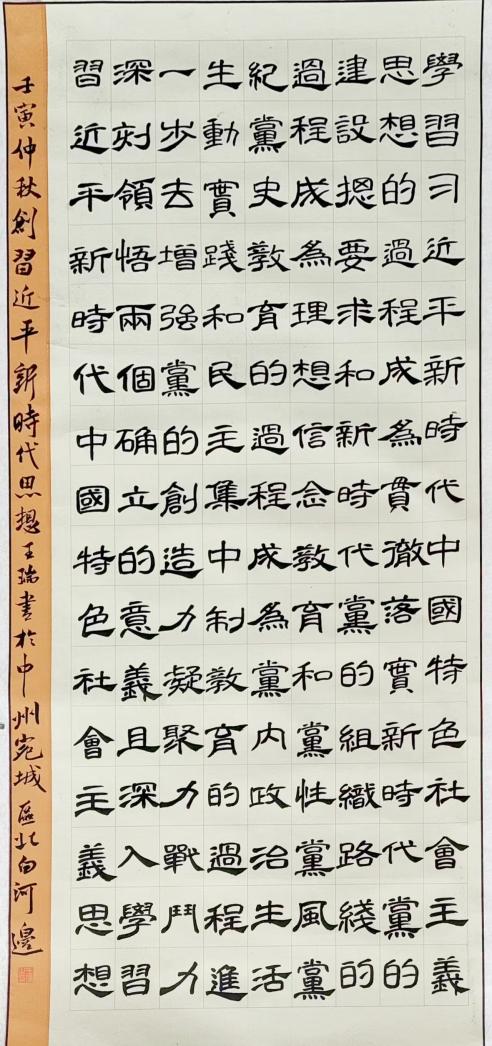 學習习近平新時代中國特色社會主義
思想的過程成為貫徹落實新時代黨的
建設揔要求和新時代黨的組織路綫的
過程成為理想信念教育和黨性黨風黨
紀黨史教育的過程成為黨內政治生活
生動實踐和民主集中制教育的過程進
一步去增強黨的創造力凝聚力戰鬥力
深刻領悟兩個确立的意義且深入學習
習近平新時代中國特色社會主義思想
壬寅仲秋創習近平新時代思想王瑞書於中州宛城區北白河邊